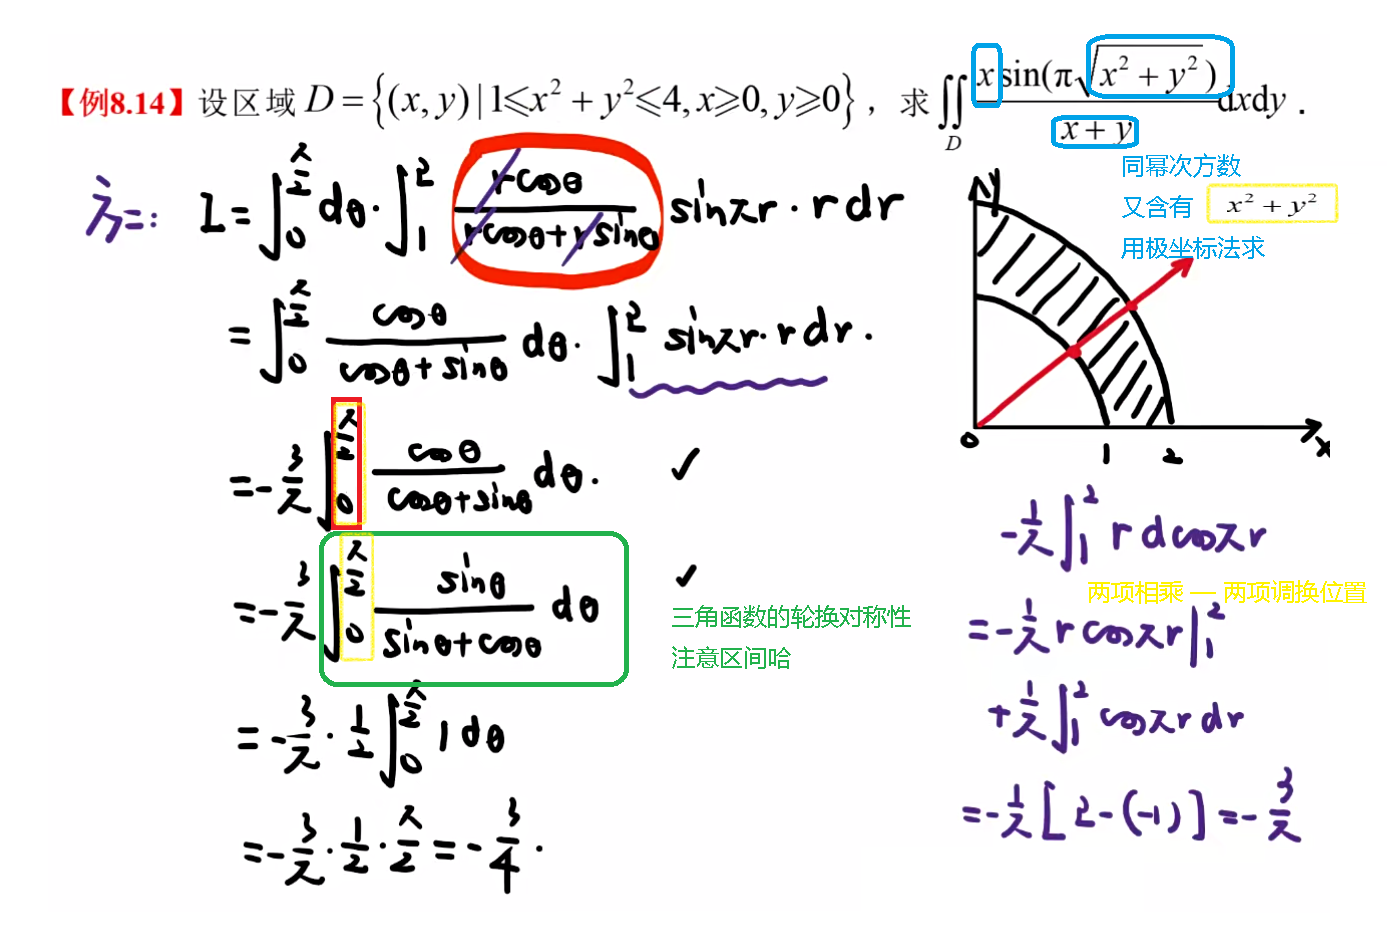 【例8.14】设区域 D = {(x, y) | 1⩽x² + y²⩽4, x⩾0, y⩾0}，求 ∬_D x sin(π√(x² + y²)) / (x + y) dxdy .
同幂次方数
又含有 x² + y²
用极坐标法求
方二: I = ∫_0^{π/2} dθ · ∫_1^2 (rcosθ)/(rcosθ+rsinθ) sinπr · r dr
= ∫_0^{π/2} cosθ/(cosθ+sinθ) dθ · ∫_1^2 sinπr · r dr.
= -3/π ∫_0^{π/2} cosθ/(cosθ+sinθ) dθ. ✓
= -3/π ∫_0^{π/2} sinθ/(sinθ+cosθ) dθ ✓
三角函数的轮换对称性
注意区间哈
= -3/π · 1/2 ∫_0^{π/2} 1 dθ
= -3/π · 1/2 · π/2 = -3/4 .
y
0 1 2 x
-1/π ∫_1^2 r dcosπr
两项相乘 — 两项调换位置
= -1/π r cosπr |_1^2
+ 1/π ∫_1^2 cosπr dr
= -1/π [2-(-1)] = -3/π